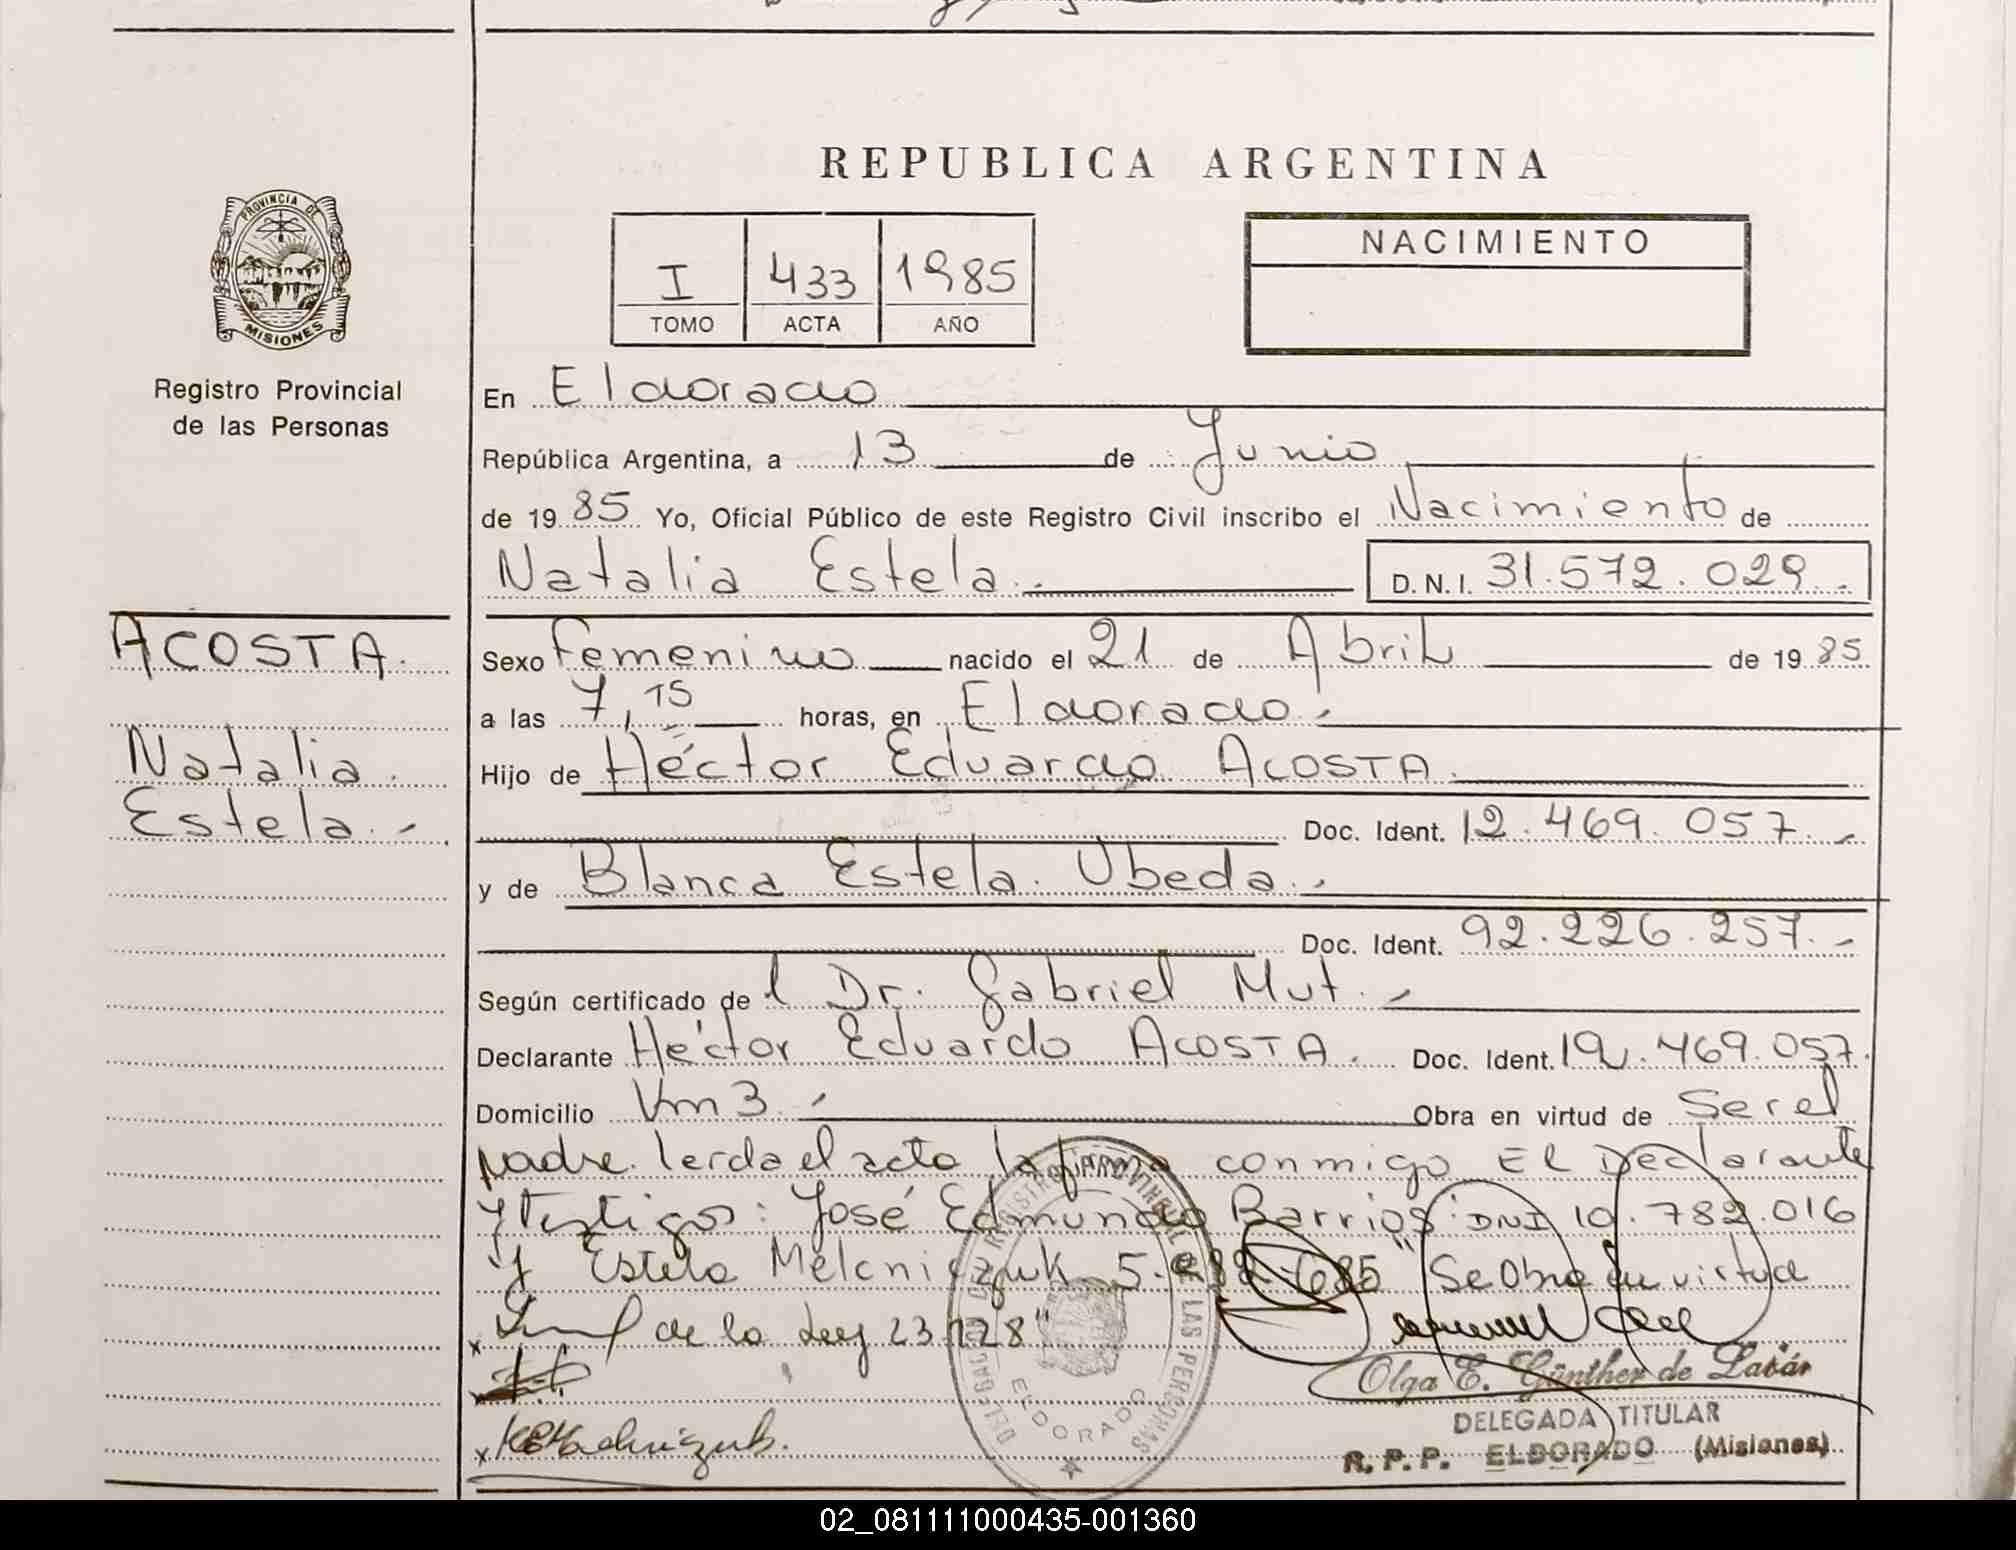 REPUBLICA ARGENTINA
PROVINCIA DE
MISIONES
Registro Provincial
de las Personas
I 433 1985
TOMO ACTA AÑO
NACIMIENTO
En Eldorado
República Argentina, a 13 de Junio
de 1985 Yo, Oficial Público de este Registro Civil inscribo el Nacimiento de
Natalia Estela.- D.N.I. 31.572.029.-
ACOSTA.
Natalia
Estela.-
Sexo Femenino nacido el 21 de Abril de 1985
a las 7,15 horas, en Eldorado.-
Hijo de Héctor Eduardo ACOSTA.
Doc. Ident. 12.469.057.-
y de Blanca Estela Ubeda.-
Doc. Ident. 92.226.257.-
Según certificado de l Dr. Gabriel Mut.-
Declarante Héctor Eduardo ACOSTA. Doc. Ident. 12.469.057.
Domicilio Km 3.- Obra en virtud de Ser el
padre. leida el acta la firma conmigo El Declarante
y Testigos: José Edmundo Barrios DNI 10.782.016
y Estela 5. 685 "Se Obra en virtud
de la Ley 23.128"
REGISTRO PROVINCIAL DE LAS PERSONAS
ELDORADO
Olga E. Günther de
DELEGADA TITULAR
R.P.P. ELDORADO (Misiones)
02_081111000435-001360